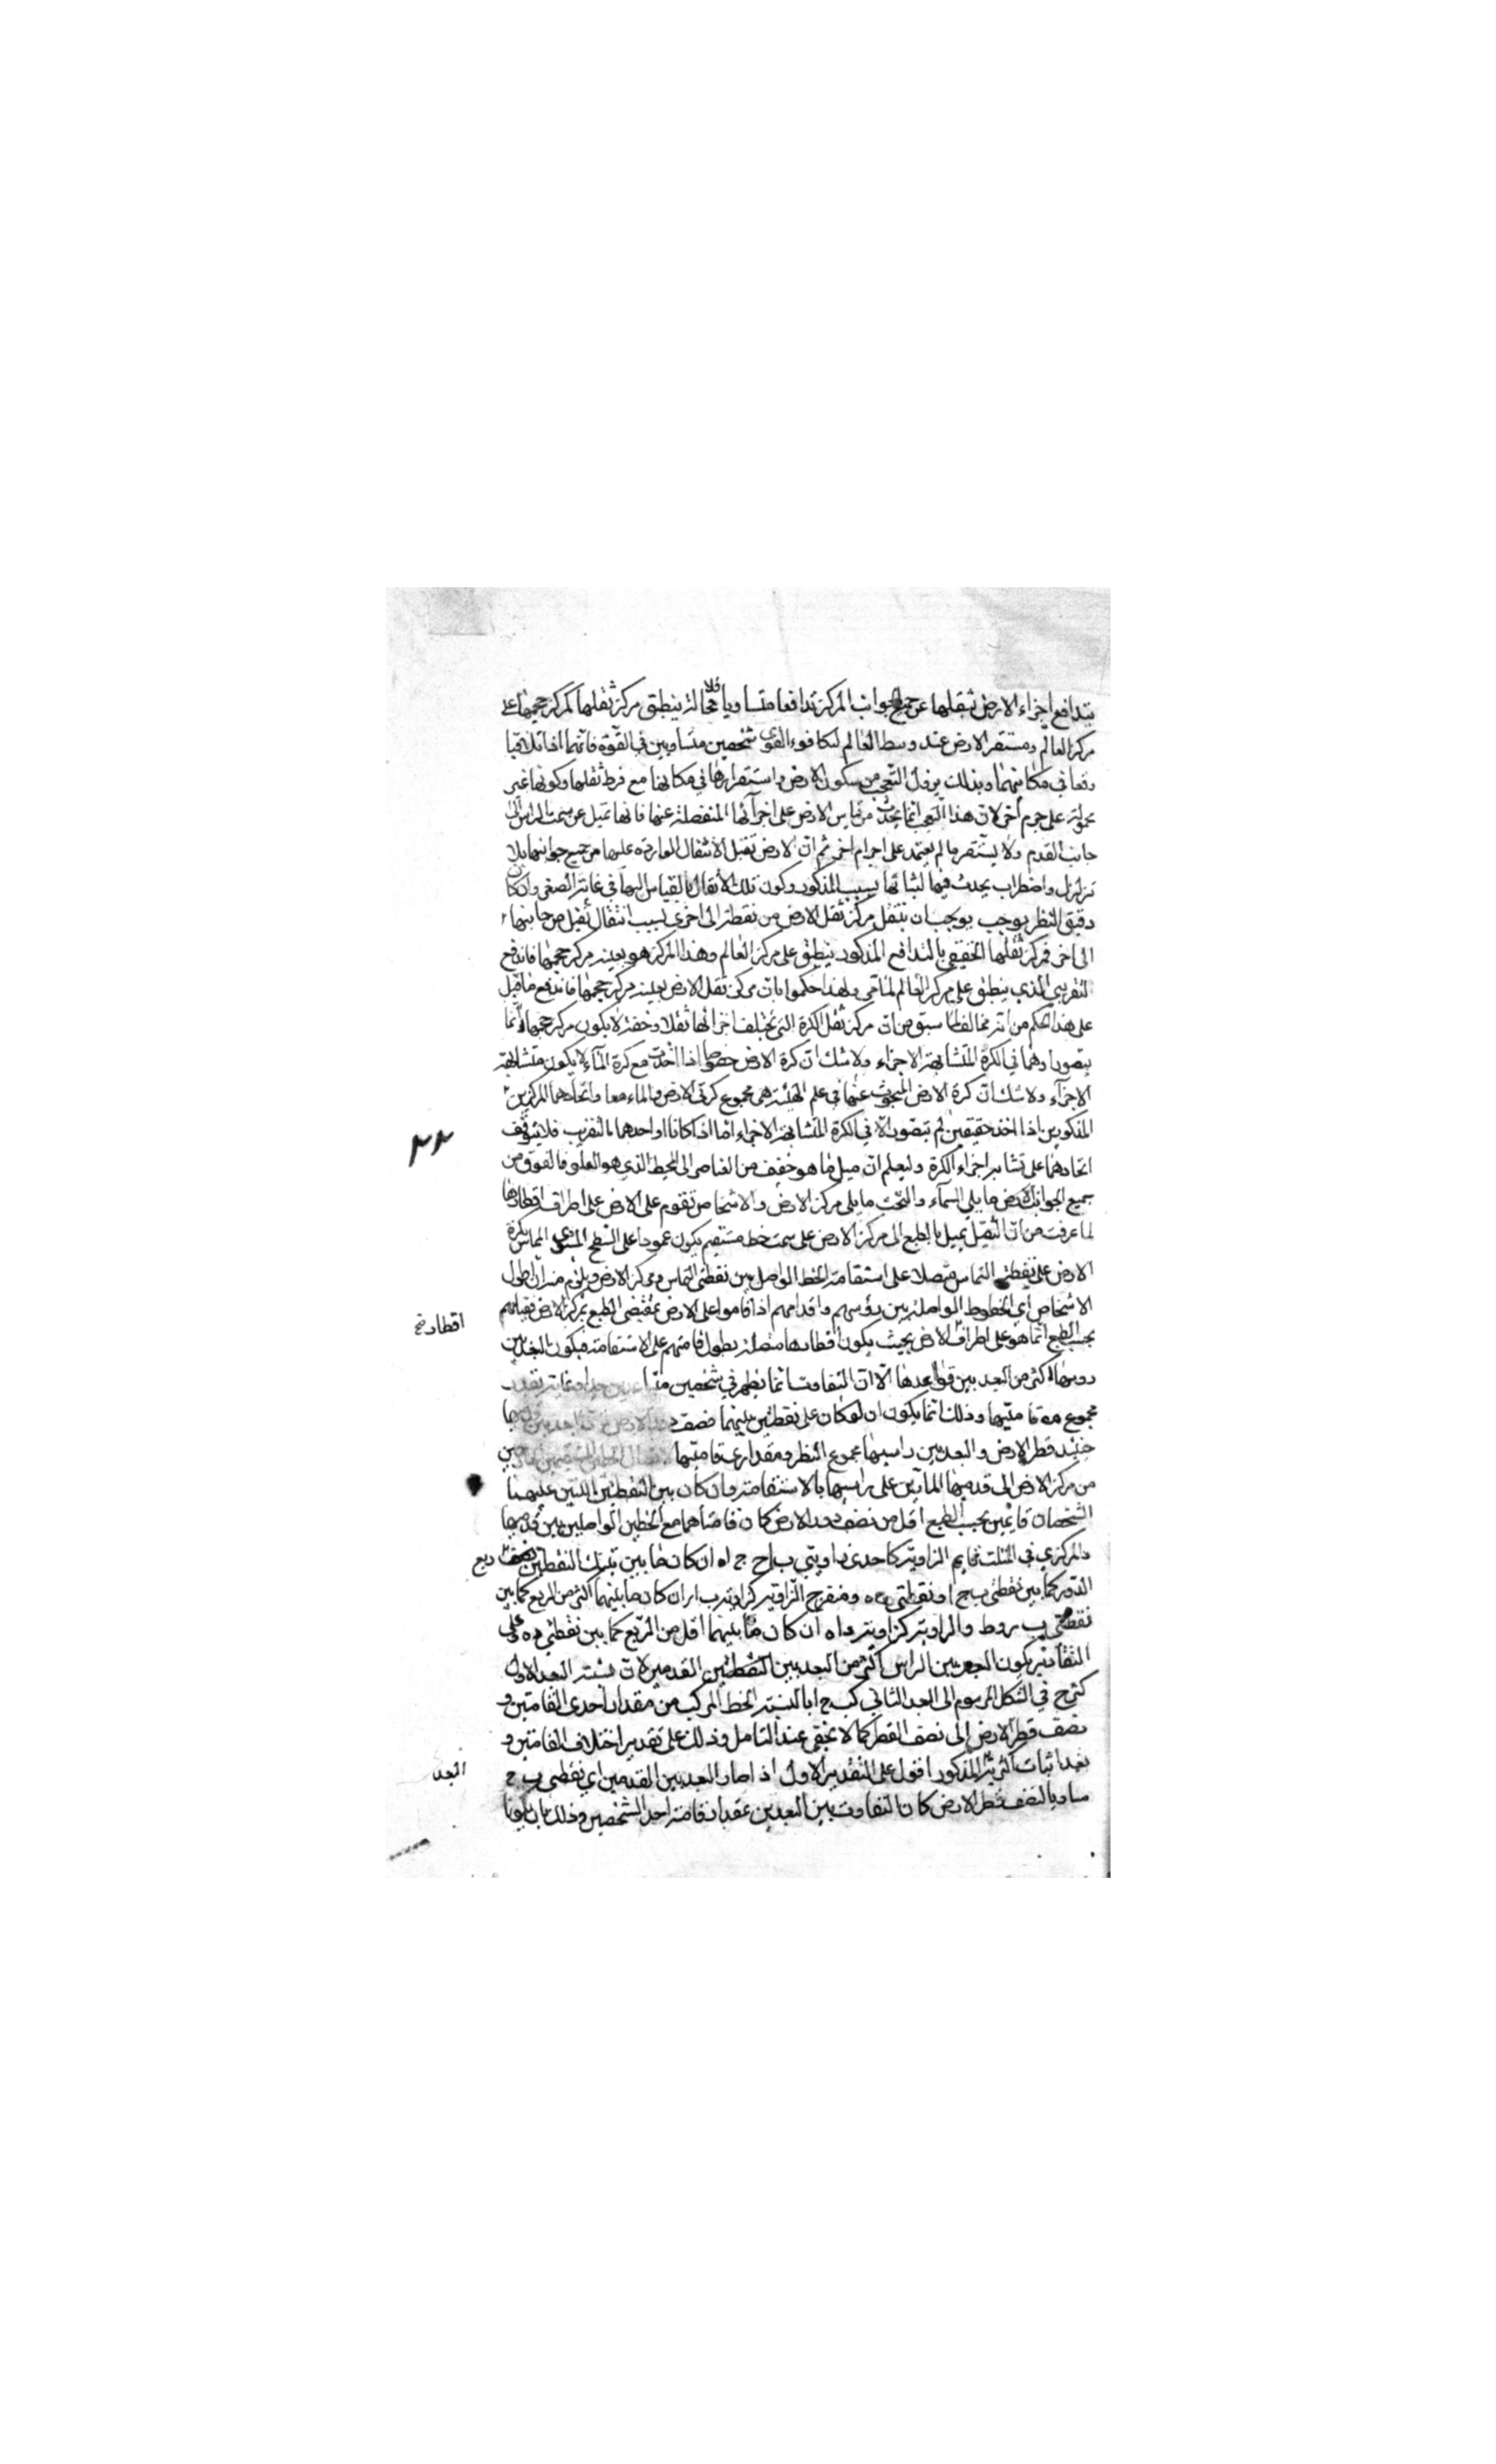 يتدافع اجزاء الارض بثقلها عن جميع جوانب المركز تدافعا متساويا فلا محالة ينطبق مركز ثقلها كمركز حجمها على
مركز العالم ومستقر الارض عند وسط العالم لتكافوء القوى شخصين متساويين في القوة فانهما اذا تلاقيا
وقعا في مكانهما وبذلك يزول التعجب من سكون الارض واستقرارها في مكانها مع فرط ثقلها وكونها غير
محمولة على جرم آخر لان هذا التعجب انما يحدث من قياس الارض على اجزائها المنفصلة عنها فانها تميل عن سمت الراس الى
جانب القدم ولا يستقر ما لم يعتمد على اجرام اخر ثم ان الارض تقبل الاثقال الواردة عليها من جميع جوانبها بلا
تزلزل واضطراب يحدث فيها لثباتها بسبب المذكور وكون تلك الاثقال بالقياس اليها في غاية الصغر وان كان
دقيق النظر يوجب يوجب ان ينتقل مركز ثقل الارض من نقطة الى اخرى بسبب انتقال ثقيل من جانبها
الى اخر فمركز ثقلها الحقيقي بالتدافع المذكور ينطبق على مركز العالم وهذا المركز هو بعينه مركز حجمها فاندفع
التقريبي الذي ينطبق على مركز العالم لما مر ولهذا حكموا بان مركز ثقل الارض بعينه مركز حجمها فاندفع ما قيل
على هذا الحكم من انه مخالف لما سبق من ان مركز ثقل الكرة التي تختلف اجزائها ثقلا وخفة لا يكون مركز حجمها وانما
يتصور اوهما في الكرة المتشابهة الاجزاء ولا شك ان كرة الارض خصوصا اذا اخذت مع كرة الماء لا يكون متشابهة
الاجزاء ولا شك ان كرة الارض المبحوث عنها في علم الهيئة هي مجموع كرتي الارض والماء معا واتحاد هما المركزين
المذكورين اذا اخذ حقيقين لم يتصور الا في الكرة المتشابهة الاجزاء اما اذا كانا او احدهما بالتقريب فلا يتوقف
اتحادهما على تشابه اجزاء الكرة وليعلم ان ميل ما هو خفيف من العناصر الى المحيط الذي هو العلو فالفوق من
جميع الجوانب الارض ما يلي السماء والتحت ما يلي مركز الارض والاشخاص تقوم على الارض على اطراف اقطارها
لما عرفت من ان الثقيل يميل بالطبع الى مركز الارض على سمت خط مستقيم يكون عمودا على السطح المستوي المماس لكرة
الارض على نقطتي التماس متصلا على استقامة الخط الواصل بين نقطتي التماس ومركز الارض ويلزم منه ان اطول
الاشخاص اي الخطوط الواصلة بين رؤسهم واقدامهم اذا قاموا على الارض بمقتضى الطبع بمركز الارض فقيامهم
اقطار خ
بحسب الطبع انما هو على اطراف الارض بحيث يكون اقطارها متصلة بطول قامتهم على الاستقامة فيكون البعد بين
رؤسها اكثر من البعد بين قواعدها الا ان التفاوت انما يظهر في شخصين متباعدين جدا وغاية
مجموع قامتيهما وذلك انما يكون ان لو كان على نقطتين بينهما نصف
حينئذ قطر الارض والبعد بين راسيهما مجموع القطر ومقداري قامتيهما
من مركز الارض الى قدميهما المارين على راسيهما بالاستقامة وان كان بين النقطتين اللتين عليهما
الشخصان قايمين بحسب الطبع اقل من نصف دور الارض كان قامتاهما مع الخطين الواصلين بين قدميهما
والمركز في المثلث قايم الزاوية كاحدى زاويتي ب ا ج ج ا ه ان كان ما بين تينك النقطتين نصف ربع
الدور كما بين نقطتي ب ج او نقطتي ج ه ومنفرج الزاوية كزاوية د ب ا ان كان ما بينهما اكثر من الربع كما بين
نقطتي ب د وط والزاوية كزاوية د ا ه ان كان ما بينهما اقل من الربع كما بين نقطتي د ه وعلى
التقادير يكون البعد بين الراس اكثر من البعد بين النقطتين القدمين لان نسبة البعد الاول
كز ح في الشكل المرسوم الى البعد الثاني كب ج ابا لنسبة الخط المركب من مقدار احدى القامتين و
نصف قطر الارض الى نصف القطر كما لا يخفى عند التامل وذلك على تقدير اختلاف القامتين و
بعد اثبات اكثرية المذكور اقول على التقدير الاول اذا صار البعد بين القدمين اي نقطتي ب ج
البعد
مساويا لنصف قطر الارض كان التفاوت بين البعدين بمقدار قامة احد الشخصين وذلك بان يكونا